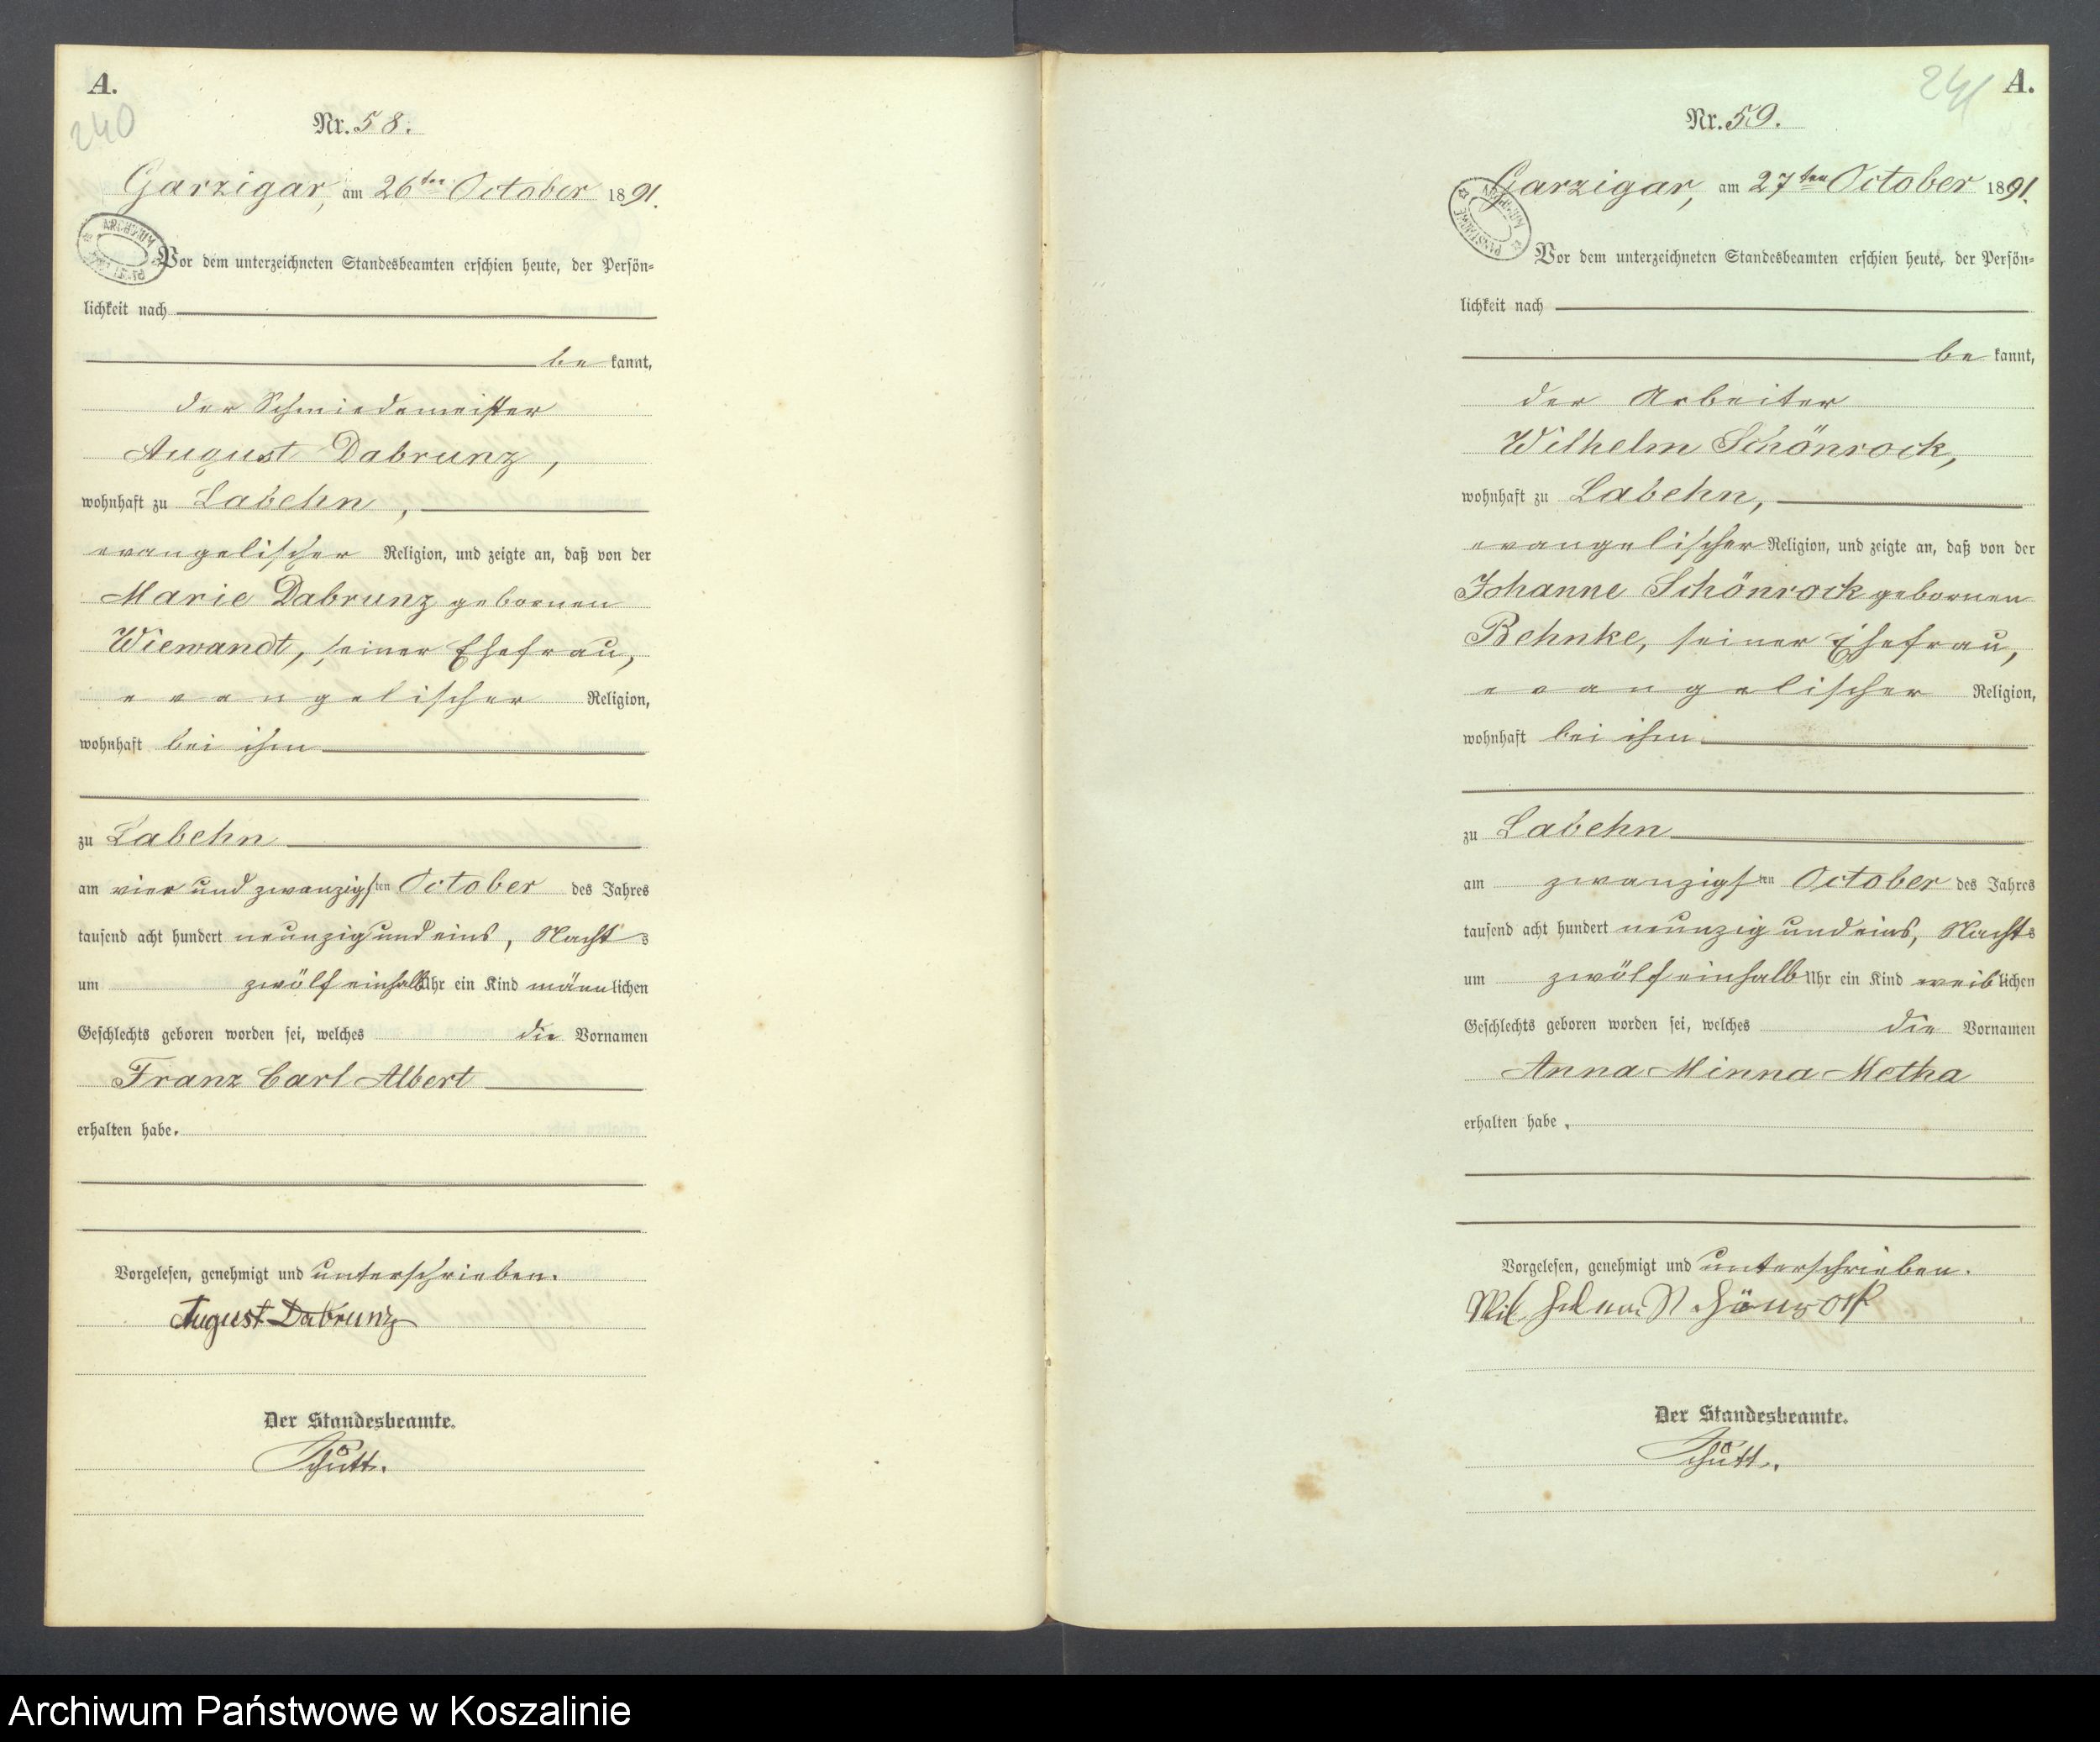 A.
240
Nr. 58.
Garzigar, am 26ten October 1891.
Vor dem unterzeichneten Standesbeamten erschien heute, der Persön=
lichkeit nach
be kannt,
der Schmiedemeister
August Dabrunz,
wohnhaft zu Labehn,
evangelischer Religion, und zeigte an, daß von der
Marie Dabrunz gebornen
Wiewandt, seiner Ehefrau,
evangelischer Religion,
wohnhaft bei ihm
zu Labehn
am vier und zwanzigsten October des Jahres
tausend acht hundert neunzig und eins, Nachts
um zwölf einhalb Uhr ein Kind männlichen
Geschlechts geboren worden sei, welches die Vornamen
Franz Carl Albert
erhalten habe.
Vorgelesen, genehmigt und unterschrieben.
August Dabrunz
Der Standesbeamte.
Schütt.
241
A.
Nr. 59.
Garzigar, am 27ten October 1891.
Vor dem unterzeichneten Standesbeamten erschien heute, der Persön=
lichkeit nach
be kannt,
der Arbeiter
Wilhelm Schönrock,
wohnhaft zu Labehn,
evangelischer Religion, und zeigte an, daß von der
Johanne Schönrock gebornen
Behnke, seiner Ehefrau,
evangelischer Religion,
wohnhaft bei ihm
zu Labehn
am zwanzigsten October des Jahres
tausend acht hundert neunzig und eins, Nachts
um zwölf einhalb Uhr ein Kind weiblichen
Geschlechts geboren worden sei, welches die Vornamen
Anna Minna Metha
erhalten habe.
Vorgelesen, genehmigt und unterschrieben.
Wilhelm Schönrock
Der Standesbeamte.
Schütt.
Archiwum Państwowe w Koszalinie